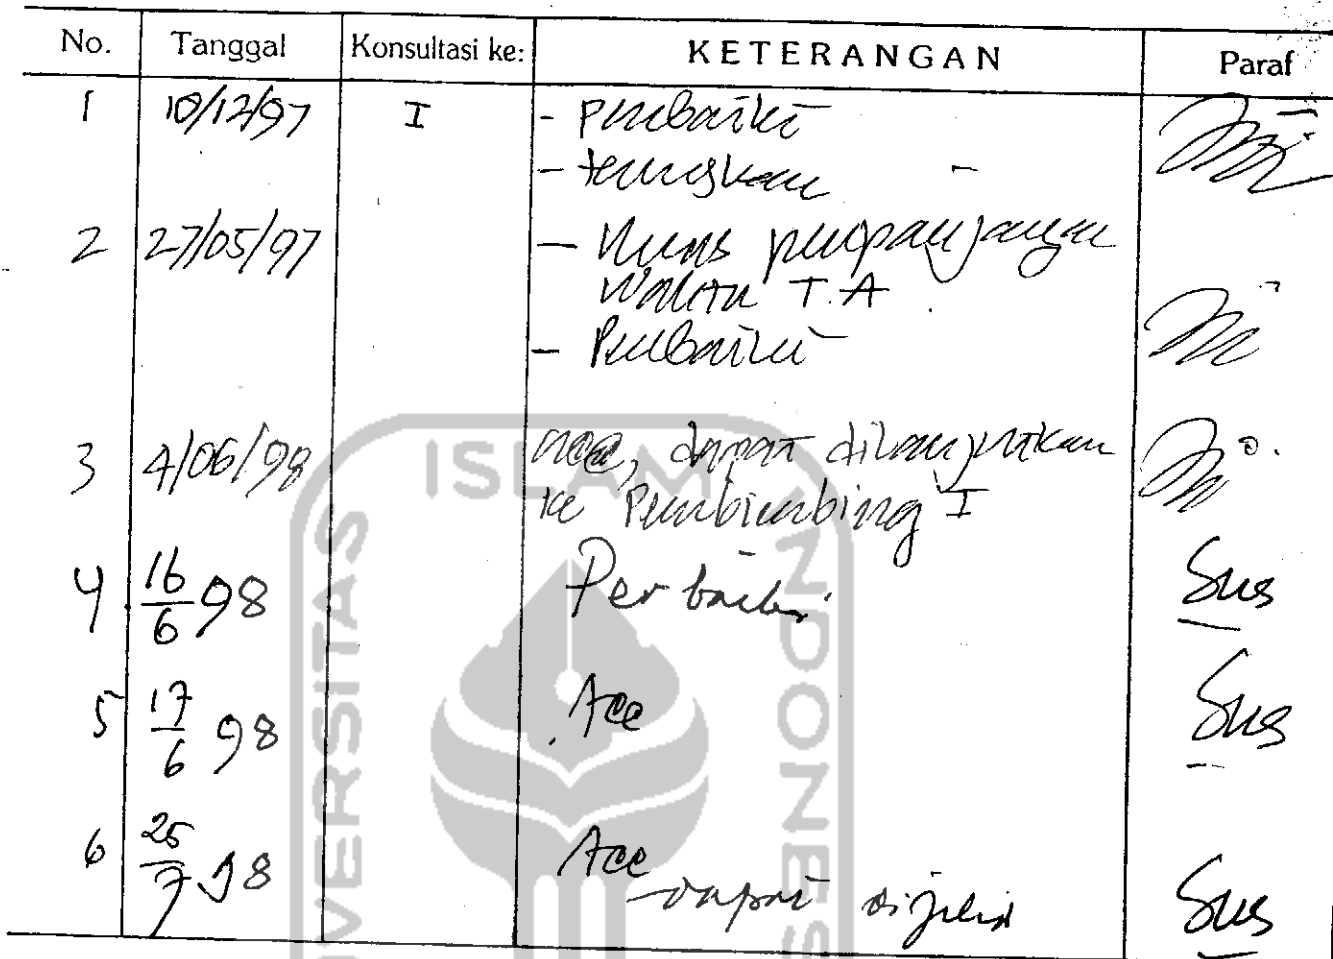 No. Tanggal Konsultasi ke: KETERANGAN Paraf
1 10/12/97 I - perbaiki
- teruskan
2 27/05/97 - Urus perpanjangan
Waktu T.A
- Perbaiki
3 4/06/98 acc, dapat dilanjutkan
ke Pembimbing I
4 16/6 98 Perbaiki Sus
5 17/6 98 Acc Sus
6 25/7 98 Acc
dapat dijilid Sus
ISLAM
UNIVERSITAS
INDONES